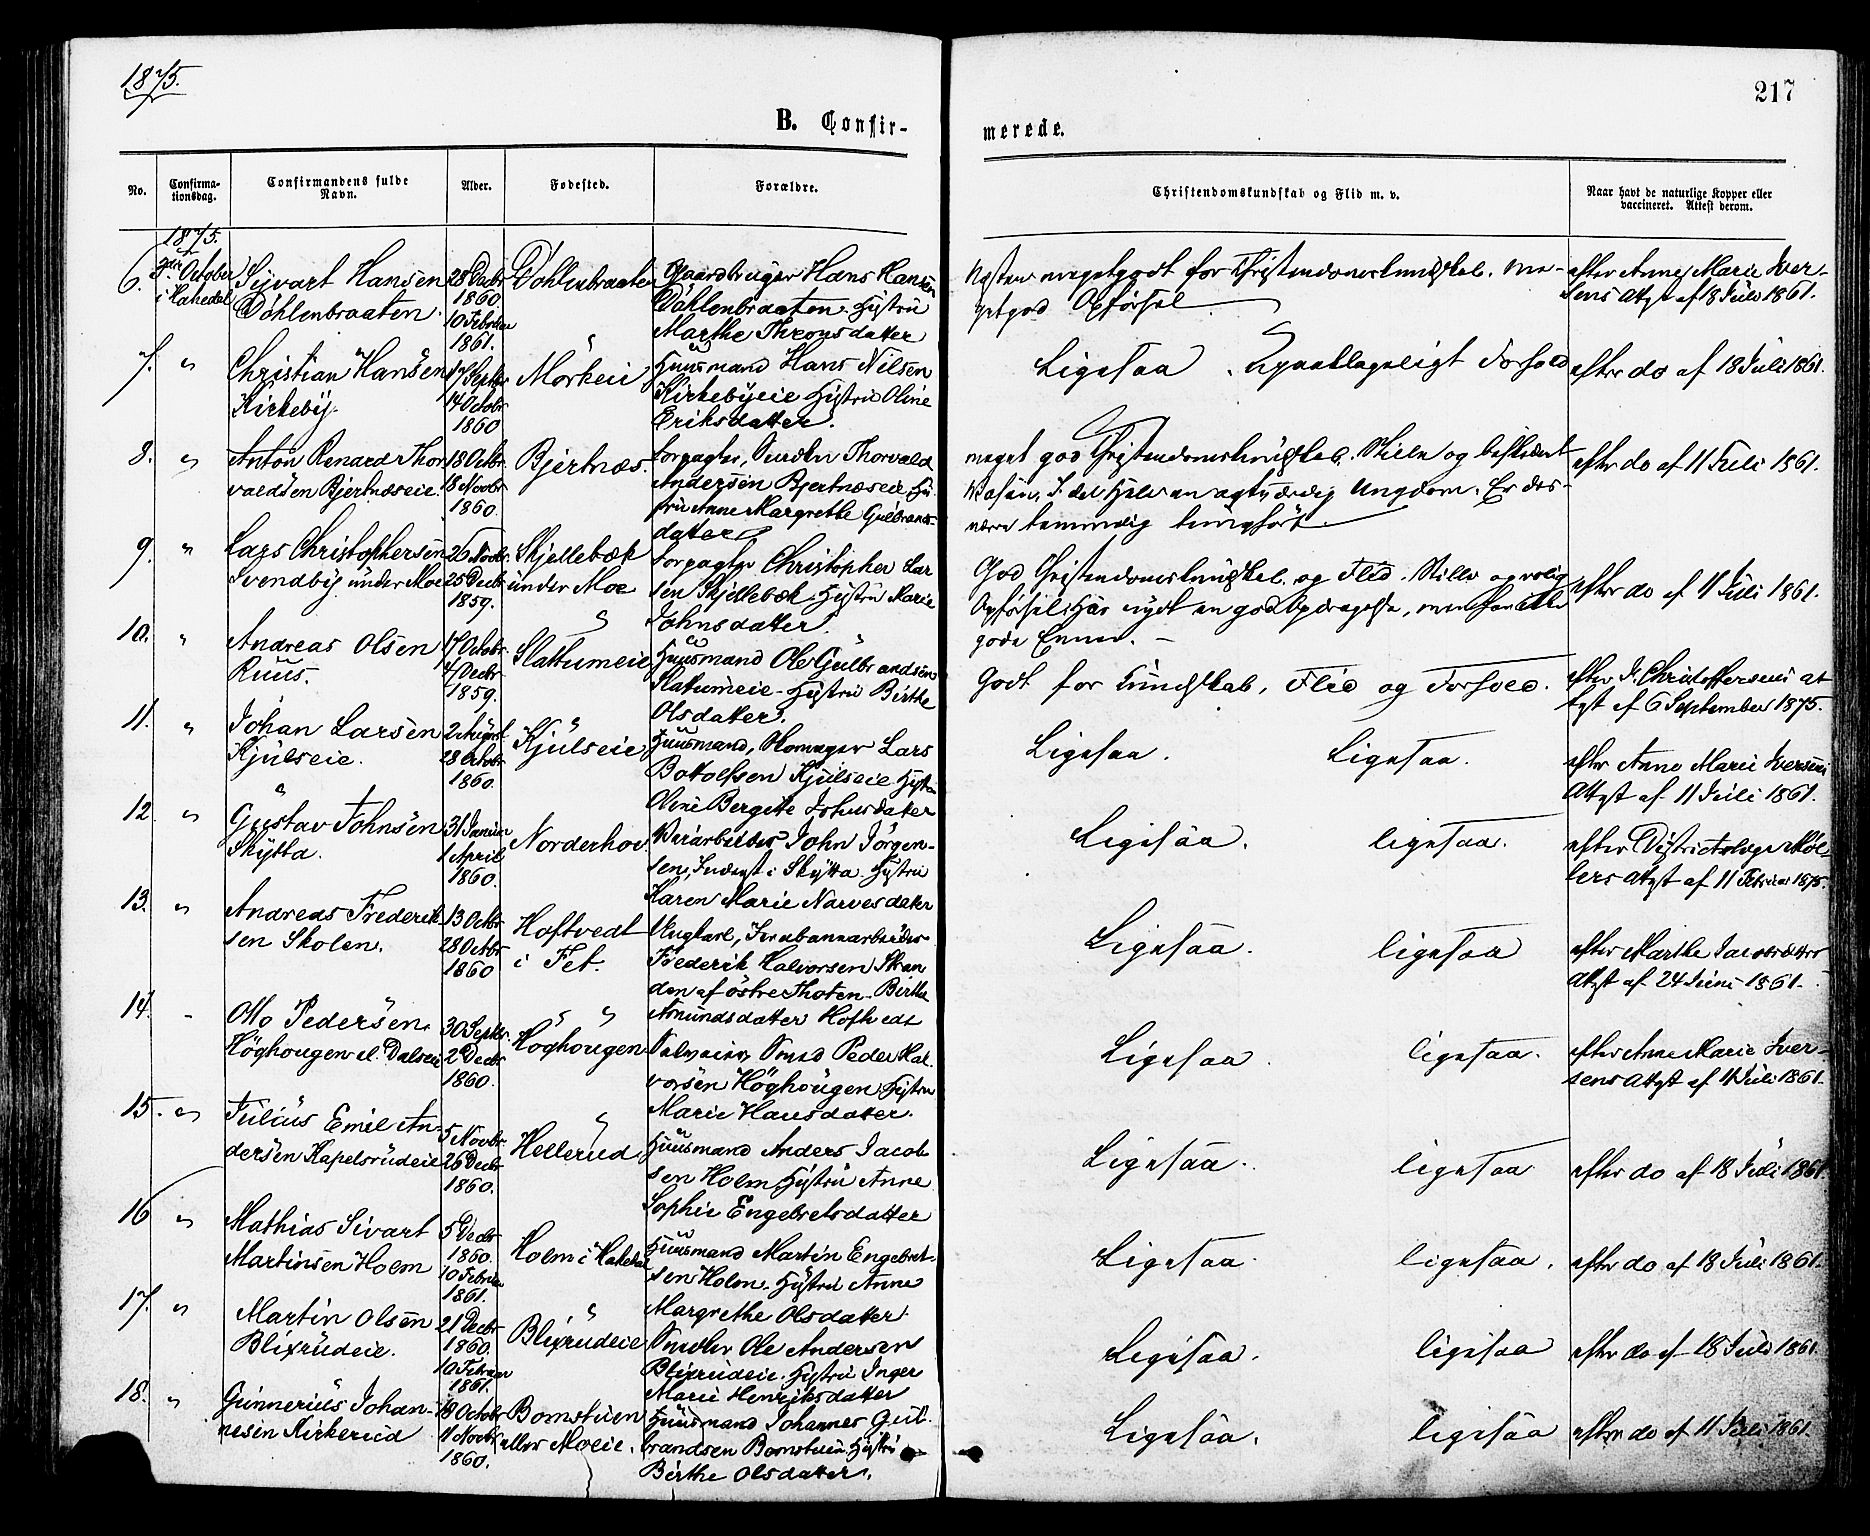 1875.
217
B. Confir-
merede.
No.
Confirma-
tionsdag.
Confirmandens fulde
Navn.
Alder.
Fødested.
Forældre.
Christendomskundskab og Flid m. v.
Naar havt de naturlige Kopper eller
vaccineret. Attest derom.
1875.
6. October i Hakedal
Syvart Hansen
Döhlenbraaten.
28 Decbr
1860
10 Februar
1861.
Döhlenbraaten
Gaardbruger Hans Hansen
Döhlenbraaten. Hustru
Marthe Thronsdatter
Næsten megetgodt for Christendomskundskab. Me-
getgod Opförsel
efter Anne Marie Iver-
sens Attest af 18 Juli 1861.
7. "
Christian Hansen
Kirkeby.
17 Septbr
14 Octobr
1860
Mörkeie
Huusmand Hans Nilsen
Kirkebyeie Hustru Oline
Eriksdatter.
Ligesaa. Upaaklageligt Forhold
efter do af 18 Juli 1861.
8. "
Anton Renard Thor
valdsen Bjertnæseie.
18 Octbr
18 Novbr
1860.
Bjertnæs.
Forpagter, Thorvald
Andersen Bjertnæseie Hu
stru Anne Margrethe Gulbrands-
datter
meget god Christendomskundskab. Stille og beskedent
Væsen. I det Hele en agtværdig Ungdom. Er des-
efter do af 11 Juli 1861.
9. "
Lars Christophersen
Svendby under Moe
26 Novbr.
25 Decbr
1859.
Skjellebæk
under Moe
Forpagter Christopher Lar
sen Skjellebæk. Hustru Marie
Johnsdatter.
God Christendomskundskab. og Flid. Stille og rolig
Opförsel. Har nydt en god Opdragelse, men har ikke
gode Evner. -
efter do af 11 Juli 1861.
10. "
Andreas Olsen
Ruus.
17 Octobr.
4 Decbr
1859.
Slattumeie
Huusmand Ole Gulbrandsen
Slattumeie - Hustru Birthe
Olsdatter.
Godt for Kundskab, Flid og Forhold.
efter I. Christoffersens at
test af 6 September 1875.
11. "
Johan Larsen
Kjulseie.
2 August
28 Octobr
1860.
Kjulseie
Huusmand, Skomager Lars
Bottolfsen Kjulseie Hustru
Oline Bergitte Johnsdatter
Ligesaa. Ligesaa.
efter Anne Marie Iversens
Attest af 11 Juli 1861.
12. "
Gustav Johnsen
Skytta.
31 Januar
1 April
1860.
Norderhov.
Veiarbeider John Jörgen-
sen, Inderst i Skytta. Hustru
Karen Marie Narvesdatter
Ligesaa. ligesaa.
efter Districtslæge Möl-
lers Attest af 11 Februar 1875.
13. "
Andreas Frederik
sen Skolen.
13 Octbr
28 Octbr
1860
Hoftvedt
i Fet.
Ungkarl, Jernbanearbeider
Frederik Halvorsen Stran
den af östre Thoten - Birthe
Amundsdatter Hoftvedt
Ligesaa. ligesaa
efter Marthe Jacobsdatters
Attest af 24 Juni 1861.
14. "
Otto Pedersen.
Höghougen el. Dalseie
30 Septbr.
2 Decbr
1860.
Höghougen
Selveier, Smed Peder Hal
vorsen Höghougen, Hustru
Marie Hansdatter.
Ligesaa. ligesaa.
efter Anne Marie Iver-
sens Attest af 11 Juli 1861.
15. "
Julius Emil An-
dersen Kapelsrudeie
5 Novbr.
26 Decbr
1860.
Hellerud.
Huusmand Anders Jacob
sen Holm Hustru Anne
Sophie Engebretsdatter
Ligesaa. ligesaa
efter do af 18 Juli 1861.
16 "
Mathias Sivart
Martinsen Holm
5 Decbr
1860.
10 Februar
1861.
Holm i Hakedal
Huusmand Martin Engebret-
sen Holm. Hustru Anne
Margrethe Olsdatter.
Ligesaa. ligesaa.
efter do af 18 Juli 1861.
17. "
Martin Olsen
Blixrudeie.
21 Decbr
1860.
10 Februar
1861.
Blixrudeie
Ole Andersen
Blixrudeie. Hustru Inger
Marie Henriksdatter
Ligesaa. ligesaa
efter do af 18 Juli 1861.
18. "
Gunnerius Johan-
nesen Kirkerud
18 Octobr
11 Novbr
1860.
Bomstuen
eller Moeie.
Huusmand Johannes Gul-
brandsen Bomstuen Hustru
Birthe Olsdatter.
Ligesaa. ligesaa
efter do af 11 Juli 1861.